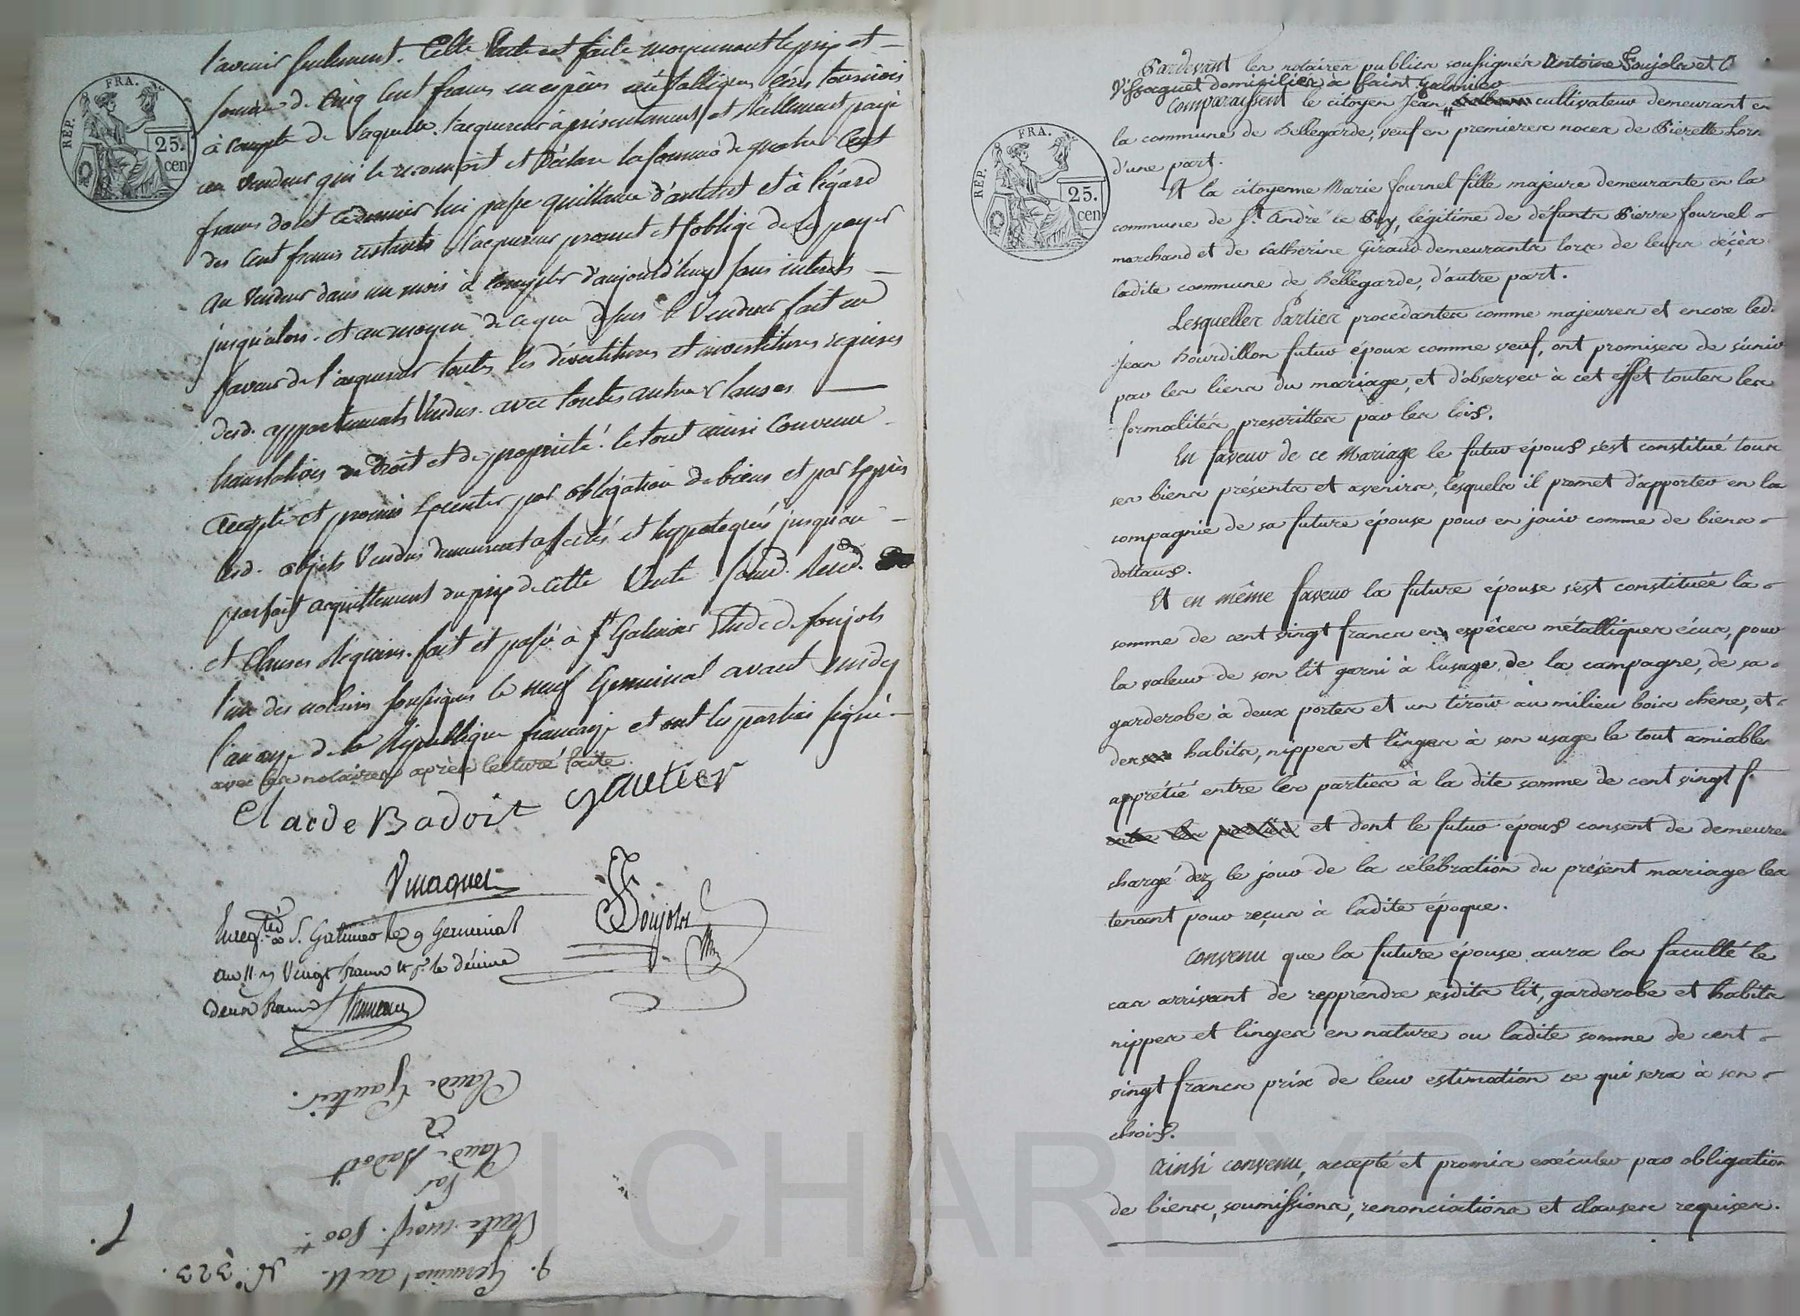 l'avenir seulement. Cette Vente est faite moyennant le prix et
somme de Cinq Cent francs en espèces métalliques écus tournois
à compte de laquelle l'acquereur a présentement et réellement payé
au vendeur qui le reconnoit et déclare la somme de quatre Cent
francs dont ce dernier lui passe quittance d'autant et à légard
des Cent francs restants l'acquereur promet et s'oblige de les payer
au vendeur dans un mois à compter d'aujourd'huy sans interets
jusqu'alors. et au moyen de ce que dessus le Vendeur fait en
faveur de l'acquereur toutes les dévestitures et investitures requises
desd. appartements Vendus. avec toutes autres Clauses
translatives de Droit et de propriété. le tout ainsi Convenu
accepté et promis exécuter par obligation de biens et par exprès
lesd. objets Vendus demeurent affectés et hypotequés jusqu'au
parfait acquittement du prix de cette Vente
et Clauses Requises. fait et passé à St Galmier Etude de foujols
l'un des notaires soussignés le neuf Germinal avant midy
l'an onze de la République française et ont les parties signé
avec les notaires après lecture faite.
Clarde Badoit Gautier
Viraguet
Foujols
Enregtré a S. Galmier le 9 Germinal
an 11 Vingt francs le décime
deux francs
REP. FRA.
25. cen
9. Germinal an 11. N.º 323.
Vente
Par
Claude Badoit
à
Claude Gautier.
REP. FRA.
25. cen
Pardevant les notaires publics soussignés Antoine Foujols et C
Viraguet domiciliés à Saint Galmier
Comparaissent le citoyen Jean cultivateur demeurant en
la commune de Bellegarde, veuf en premieres noces de Pierette
d'une part.
Et la citoyenne Marie fournel fille majeure demeurante en la
commune de St. André le Puy, légitime de défunts Pierre fournel
marchand et de Catherine Giraud demeurants lors de leurs décès
ladite commune de Bellegarde, d'autre part.
Lesquelles Parties procédantes comme majeures et encore led.
Jean Bourdillon futur époux comme veuf, ont promises de s'unir
par les liens du mariage, et d'observer à cet effet toutes les
formalités prescrittes par les lois.
En faveur de ce Mariage le futur époux s'est constitué tous
ses biens présents et avenirs, lesquels il promet d'apporter en la
compagnie de sa future épouse pour en jouir comme de biens
dotaux.
Et en même faveur la future épouse s'est constituée la
somme de cent vingt francs en espèces métalliques écus, pour
la valeur de son lit garni à l'usage de la campagne, de sa
garderobe à deux portes et un tiroir au milieu bois chêne, et
des habits, nippes et linges à son usage le tout amiable
apprétié entre les parties à la dite somme de cent vingt f.
entre les parties et dont le futur époux consent de demeurer
chargé dez le jour de la célébration du présent mariage les
tenant pour reçus à ladite époque.
Convenu que la future épouse aura la faculté le
cas arrivant de repprendre sesdits lit, garderobe et habits
nippes et linges en nature ou ladite somme de cent
vingt francs prix de leur estimation ce qui sera à son
choix.
Ainsi convenu, accepté et promis exécuter par obligation
de biens, soumissions, renonciations et clauses requises.
Pascal CHAREYRON